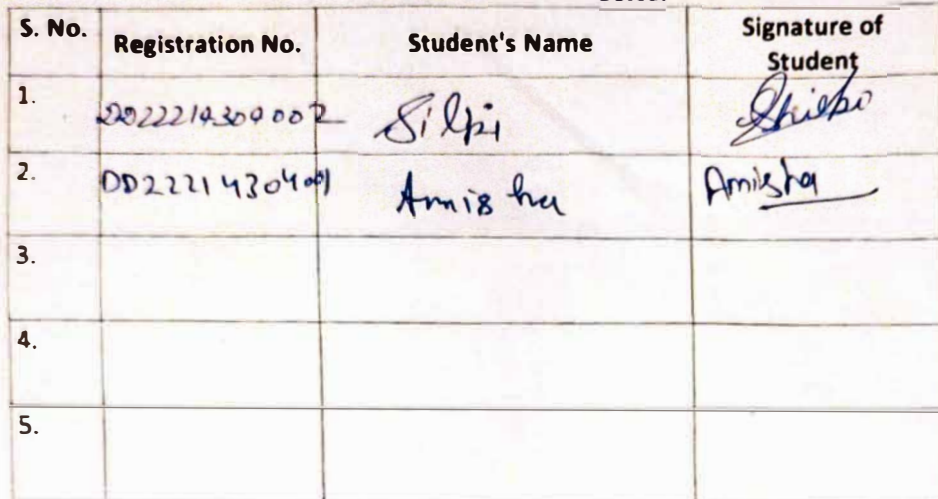 S. No. Registration No. Student's Name Signature of Student
1. DD222143040002 Silpi Shilpi
2. DD22214304001 Amisha Amisha
3.
4.
5.